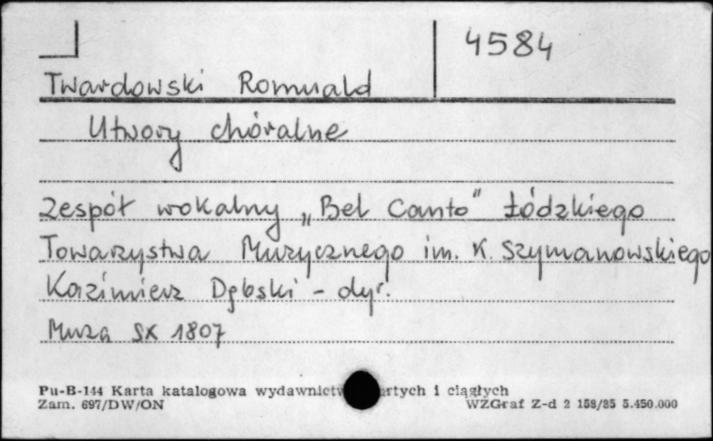 4584
Twardowski Romuald
Utwory chóralne
Zespół wokalny „Bel Canto" Łódzkiego
Towarzystwa Muzycznego im. K. Szymanowskiego
Kazimierz Dębski - dyr.
Muza SX 1807
Pu-B-144 Karta katalogowa wydawnictw artych i ciągłych
Zam. 697/DW/ON WZGraf Z-d 2 158/85 5.450.000